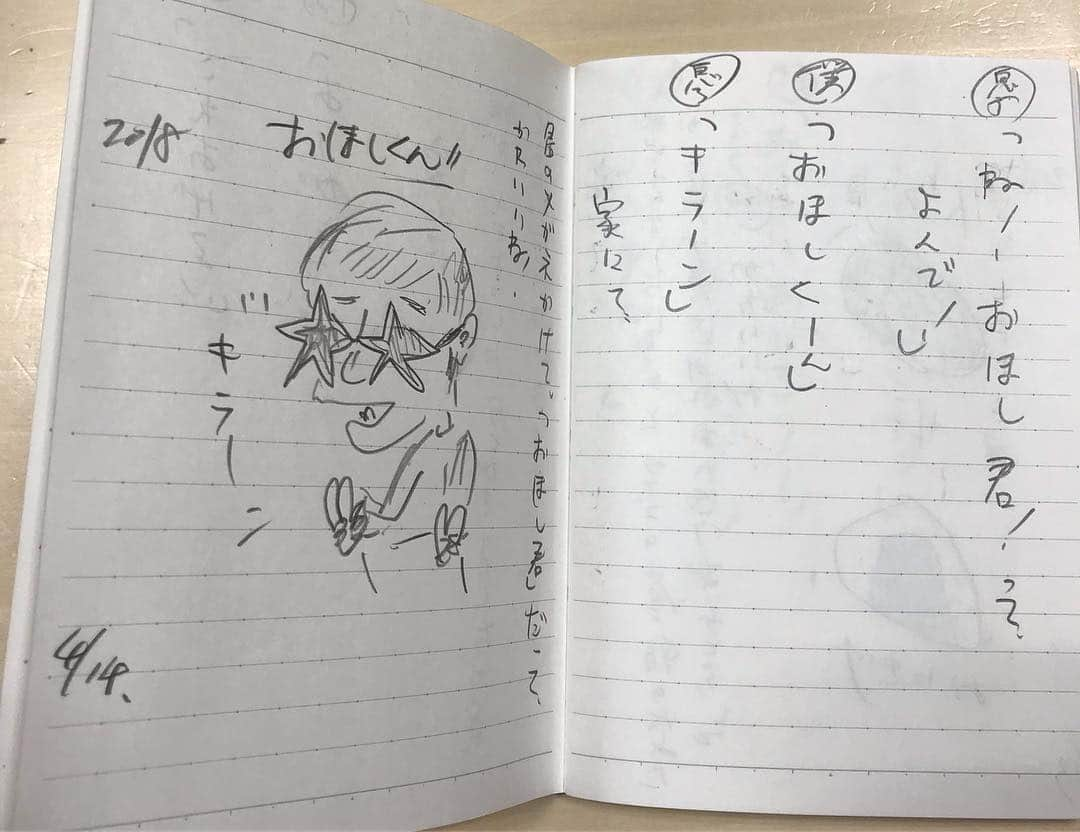 息子「ねー おほし君!って、
よんで!」
僕「おほしくーん」
息子「キラーン」
家にて、
星のメガネかけて、「おほし君」だって、
かわいいね!..
おほしくん!!
2018
キラーン
4/14.